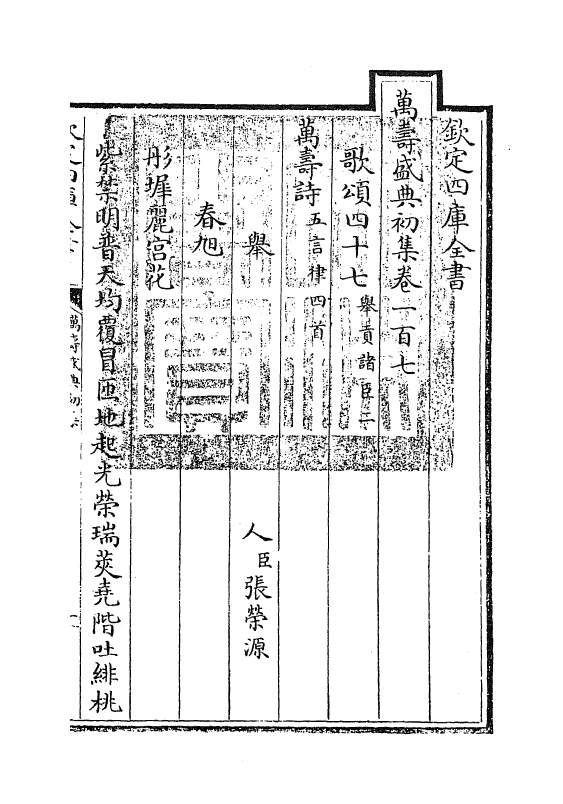 欽定四庫全書
萬壽盛典初集卷一百七
歌頌四十七舉貢諸臣二
萬壽詩五言律四首
舉人臣張榮源
春旭
彤墀麗宮花
紫禁明普天均覆冒匝地起光榮瑞莢堯階吐緋桃